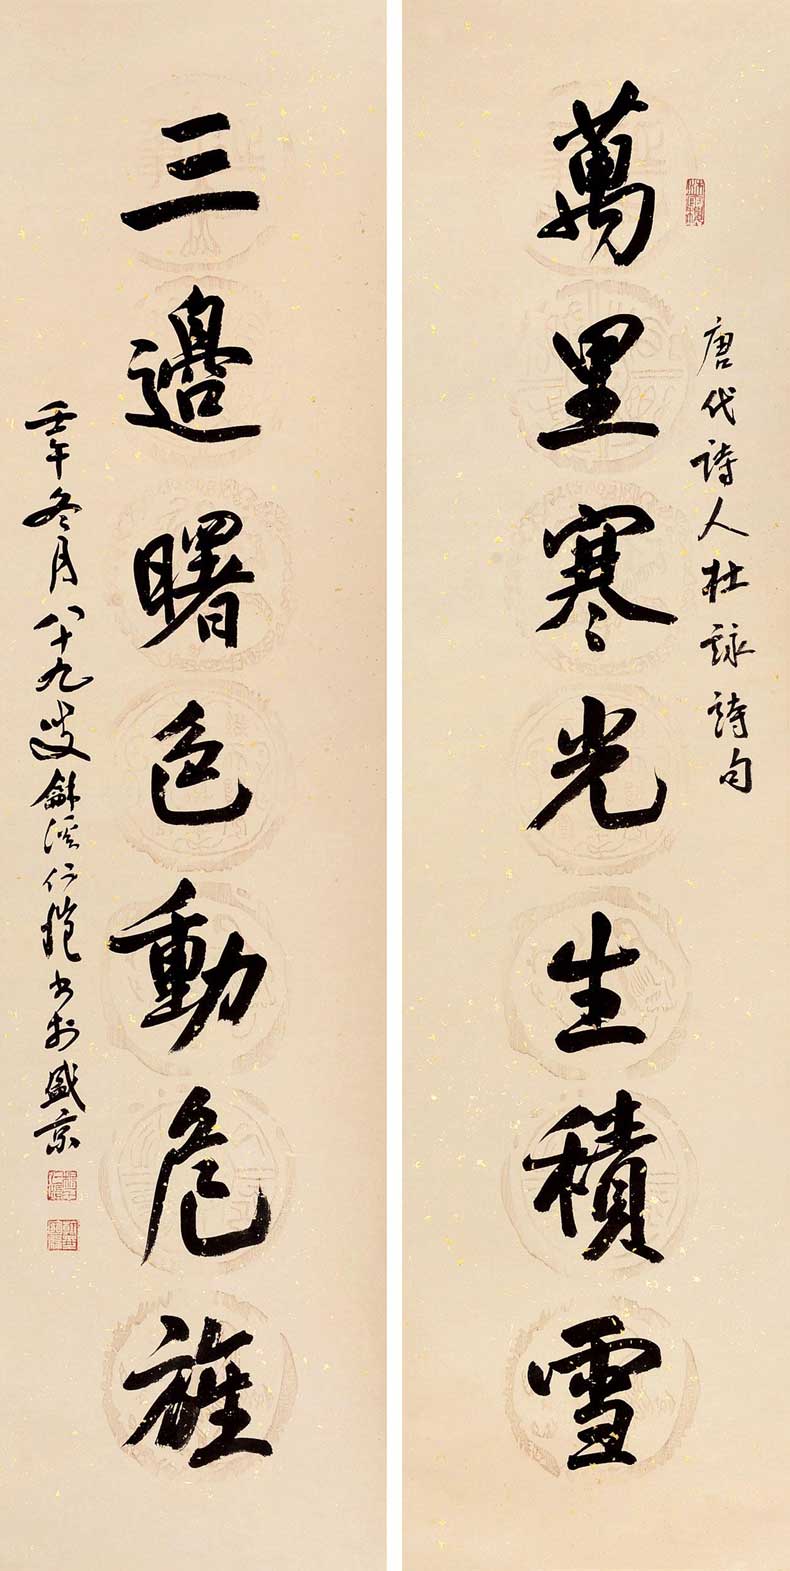 萬里寒光生積雪
唐代詩人杜詠詩句
三邊曙色動危旌
壬午冬月八十九叟龢溪仁愷書於盛京